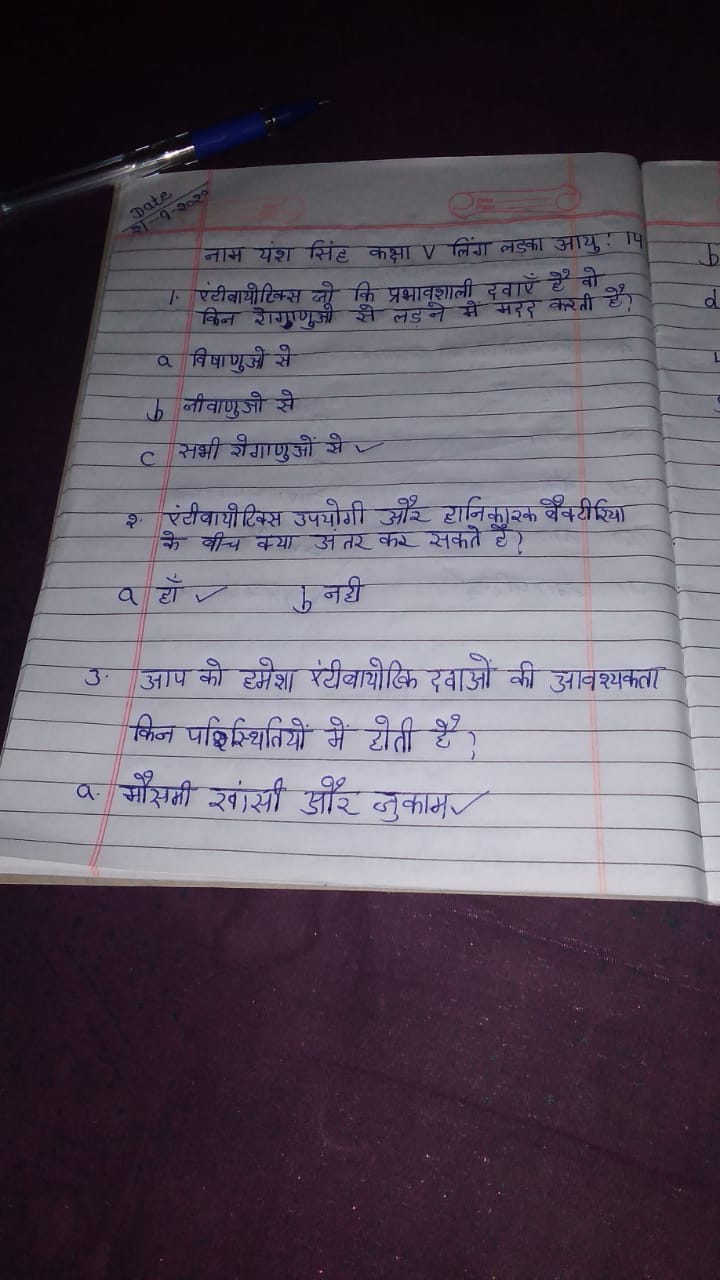 Date
21-9-2020
नाम यंश सिंह कक्षा V लिंग लड़का आयु: 14
1. एंटीबायोटिक्स जो कि प्रभावशाली दवाएँ है वो
किन रोगाणुओ से लड़ने में मदद करती है?
a विषाणुओ से
b जीवाणुओ से
c सभी रोगाणुओं से ✓
२. एंटीबायोटिक्स उपयोगी और हानिकारक बैक्टीरिया
के बीच क्या अंतर कर सकते है?
a हाँ ✓ b नही
3. आप को हमेशा एंटीबायोटिक दवाओं की आवश्यकता
किन परिस्थितियों में होती है?
a. मौसमी खांसी और जुकाम ✓
b
d